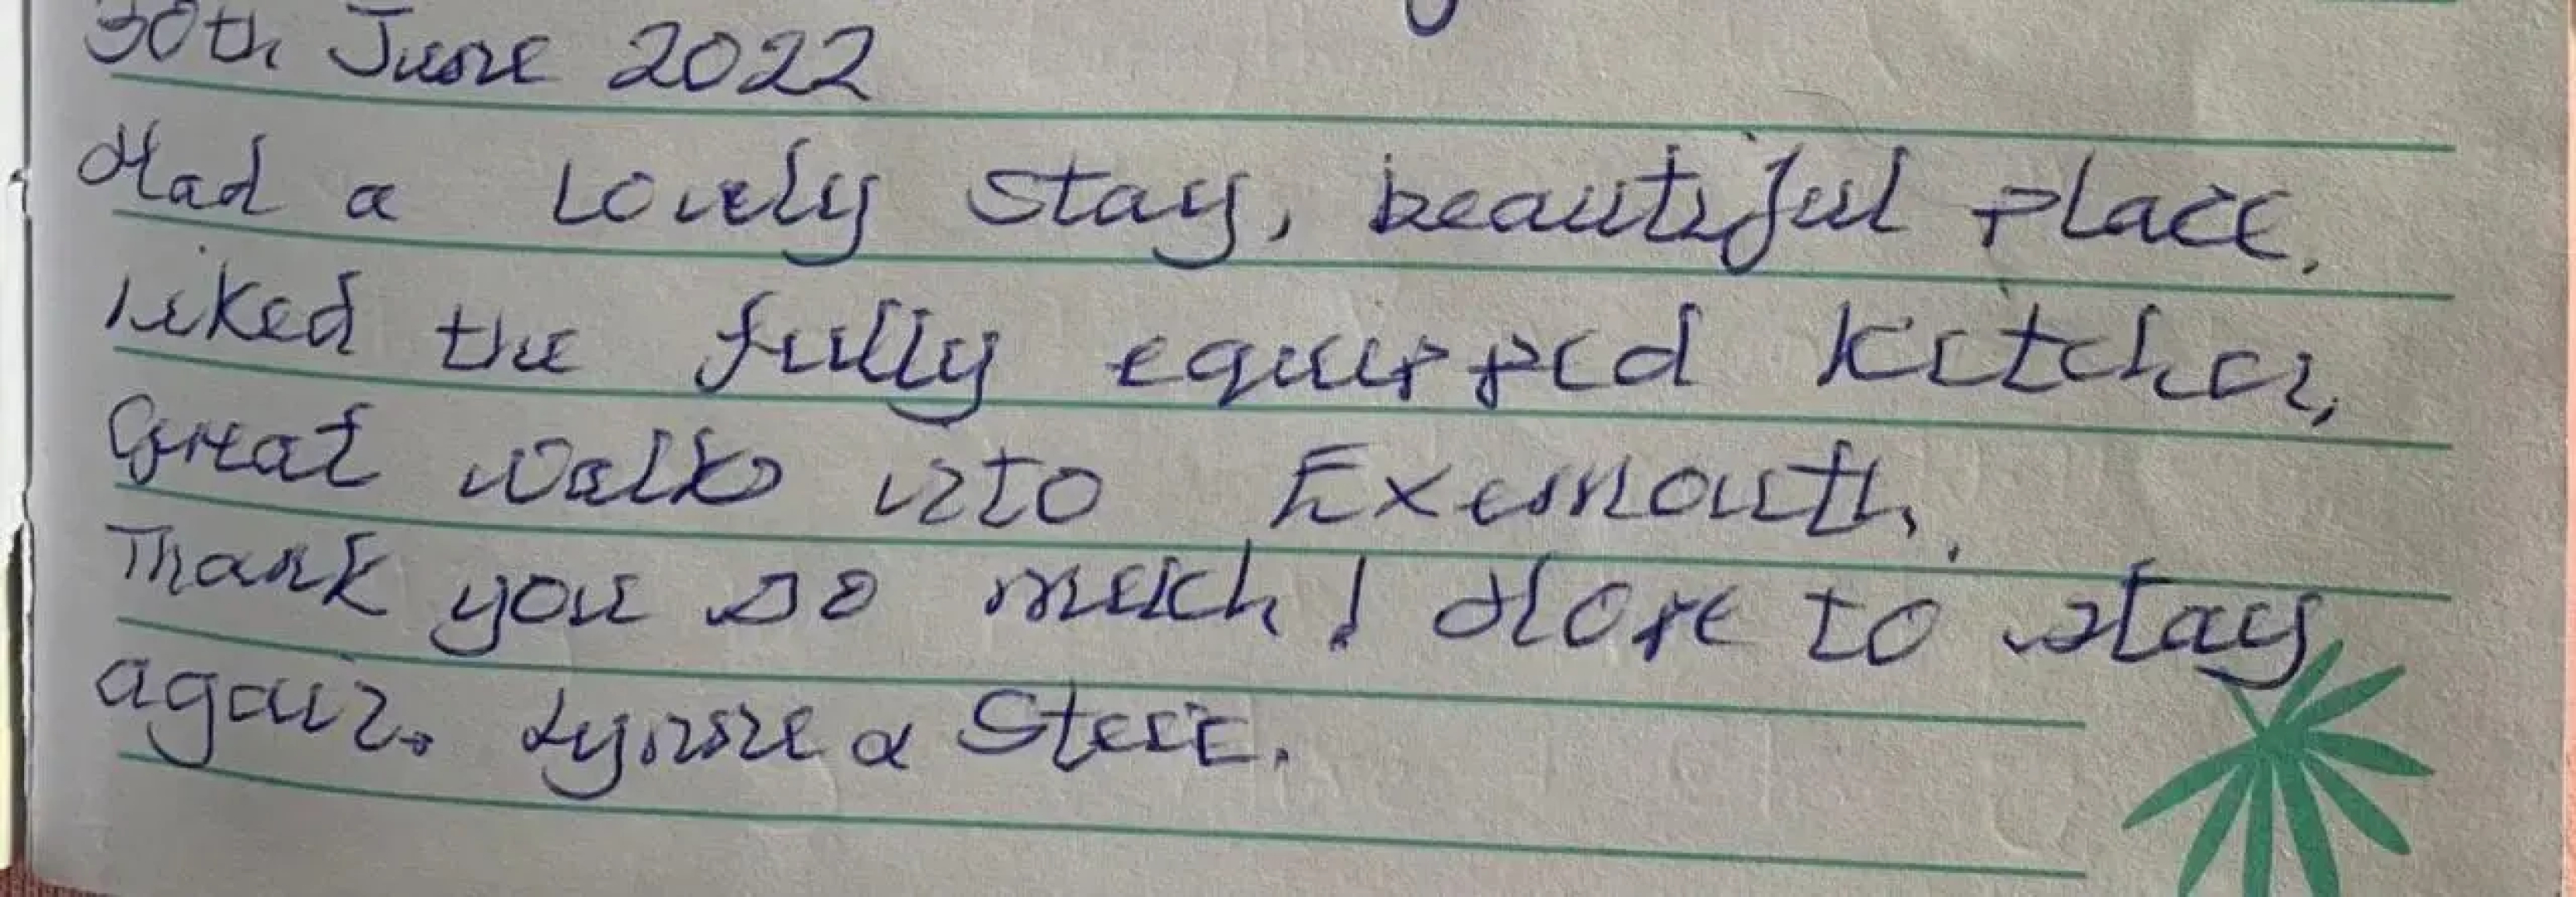 30th June 2022
Had a Lovely stay, beautiful place.
Liked the fully equipped Kitchen,
Great walk into Exemouth.
Thank you so much! Hope to stay
again. Lynne & Steve.